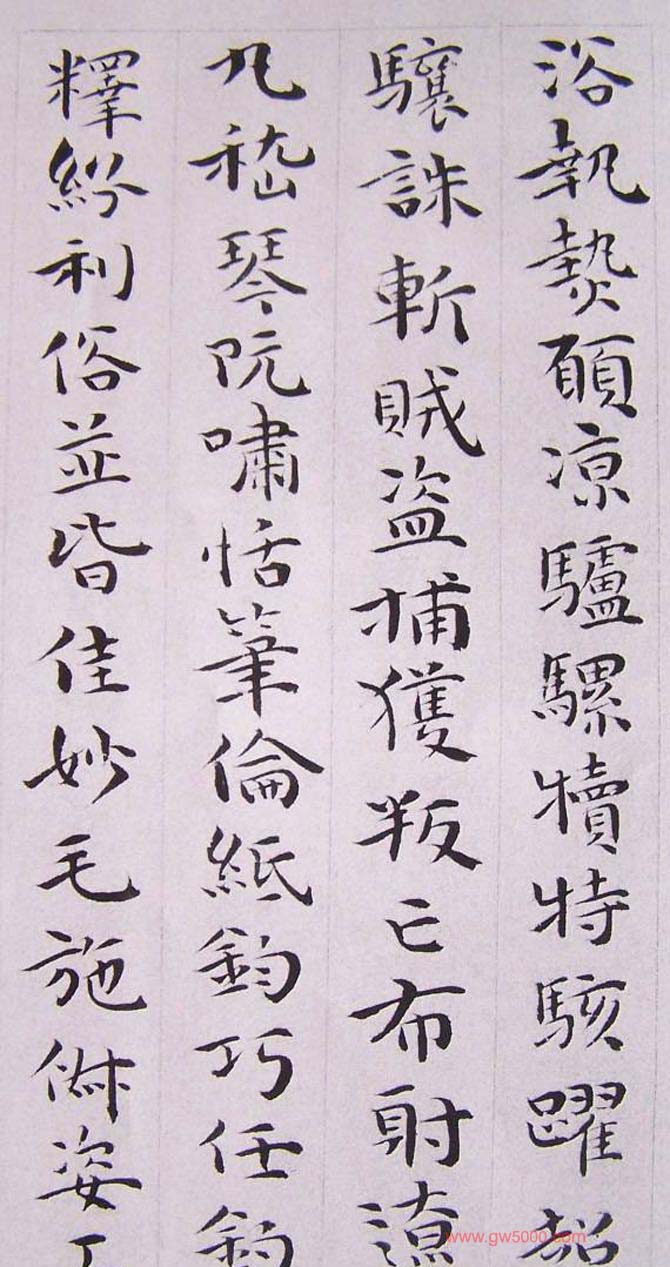 浴執熱願凉驢騾犢特駭躍超
驤誅斬賊盗捕獲叛亡布射遼
丸嵇琴阮嘯恬筆倫紙鈞巧任釣
釋紛利俗並皆佳妙毛施淑姿工
www.gw5000.com